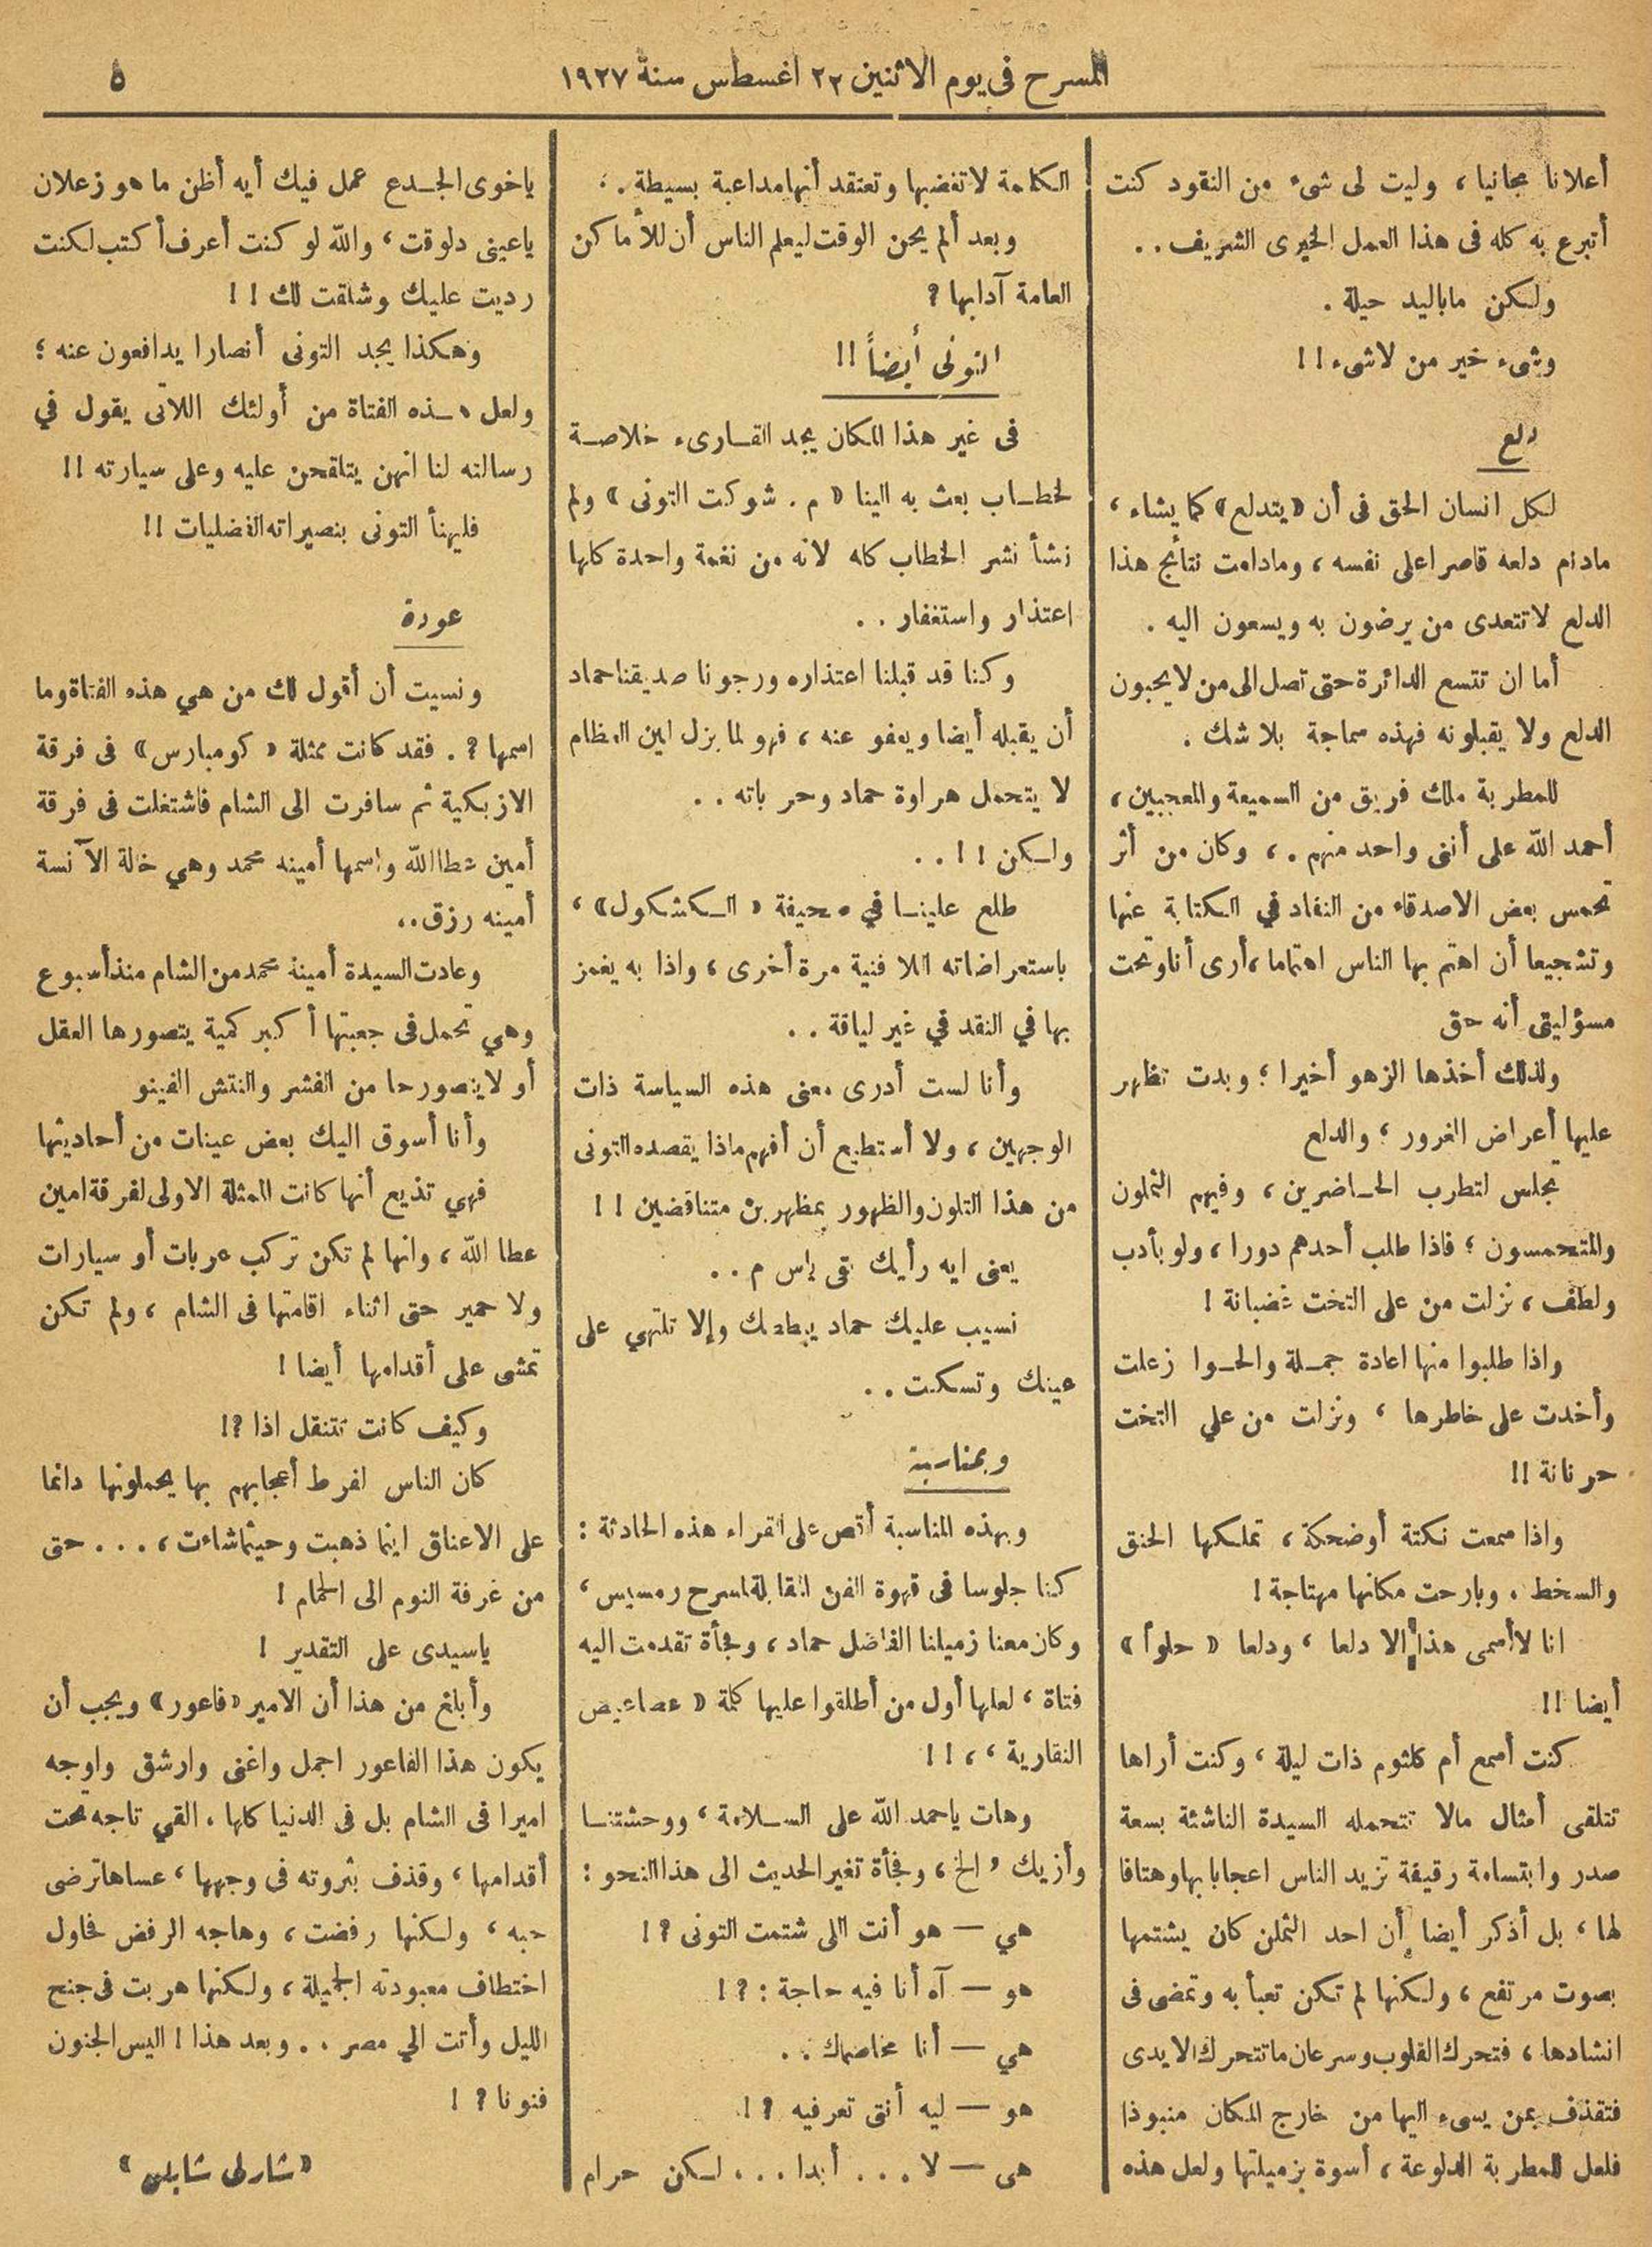 المسرح فى يوم الاثنين ٢٢ اغسطس سنة ١٩٢٧
٥
أعلانا مجانيا، وليت لى شىء من النقود كنت
أتبرع به كله فى هذا العمل الخيرى الشريف..
ولكن ماباليد حيلة.
وشىء خير من لاشىء!!
دلع
لكل انسان الحق فى أن «يتدلع» كما يشاء،
مادام دلعه قاصرا على نفسه، ومادامت نتائج هذا
الدلع لا تتعدى من يرضون به ويسعون اليه.
أما ان تتسع الدائرة حتى تصل الى من لا يحبون
الدلع ولا يقبلونه فهذه سماجة بلا شك.
للمطربة ملك فريق من السميعة والمعجبين،
أحمد الله على أننى واحد منهم.، وكان من أثر
تحمس بعض الاصدقاء من النقاد في الكتابة عنها
وتشجيعا أن اهتم بها الناس اهتماما، أرى أنا وتحت
مسؤليتى أنه حق
ولذلك أخذها الزهو أخيرا؛ وبدت تظهر
عليها أعراض الغرور؛ والدلع
تجلس لتطرب الحاضرين، وفيهم الثملون
والمتحمسون؛ فاذا طلب أحدهم دورا، ولو بأدب
ولطف، نزلت من على التخت غضبانة!
واذا طلبوا منها اعادة جملة والحوا زعلت
وأخدت على خاطرها، ونزلت من علي التخت
حرنانة!!
واذا سمعت نكتة أوضحكة، تملكها الحنق
والسخط. وبارحت مكانها مهتاجة!
انا لا أسمى هذا الا دلعا، ودلعا «حلوا»
أيضا!!
كنت أسمع أم كلثوم ذات ليلة، وكنت أراها
تتلقى أمثال مالا تتحمله السيدة الناشئة بسعة
صدر وابتسامة رقيقة تزيد الناس اعجابا بها وهتافا
لها، بل أذكر أيضا أن احد الثملن كان يشتمها
بصوت مرتفع، ولكنها لم تكن تعبأ به وتمضى فى
انشادها، فتحرك القلوب وسرعان ما تتحرك الايدى
فتقذف بمن يسىء اليها من خارج المكان منبوذا
فلعل للمطربة الدلوعة، أسوة بزميلتها ولعل هذه
الكلمة لا تغضبها وتعتقد أنها مداعبة بسيطة..
وبعد ألم يحن الوقت ليعلم الناس أن للأماكن
العامة آدابها؟
التونى أيضاً!!
فى غير هذا المكان يجد القارىء خلاصة
لخطاب بعث به الينا «م. شوكت التونى» ولم
نشأ نشر الخطاب كله لانه من نغمة واحدة كلها
اعتذار واستغفار..
وكنا قد قبلنا اعتذاره ورجونا صديقنا حماد
أن يقبله أيضا ويعفو عنه، فهو لما يزل لين العظام
لا يتحمل هراوة حماد وحرباته..
ولكن!!..
طلع علينا في صحيفة «الكشكول»،
باستعراضاته اللا فنية مرة أخرى، واذا به يغمز
بها في النقد في غير لياقة..
وأنا لست أدرى معنى هذه السياسة ذات
الوجهين، ولا أستطيع أن أفهم ماذا يقصده التونى
من هذا التلون والظهور بمظهرين متناقضين!!
يعنى ايه رأيك بقى ياس م..
نسيب عليك حماد يبططك وإلا تلتهي على
عينك وتسكت..
وبمناسبة
وبهذه المناسبة أقص على القراء هذه الحادثة:
كنا جلوسا فى قهوة الفن المقابلة لمسرح رمسيس،
وكان معنا زميلنا الفاضل حماد، وفجأة تقدمت اليه
فتاة، لعلها أول من أطلقوا عليها كلمة «عصاعيص
النقارية،،!!
وهات ياحمد الله على السلامة، ووحشتنا
وأزيك، الخ، وفجأة تغير الحديث الى هذا النحو:
هي — هو أنت اللى شتمت التونى؟!
هو — آه أنا فيه حاجة:؟!
هي — أنا مخاصماك..
هو — ليه أنتى تعرفيه؟!
هى — لا... أبدا... لكن حرام
ياخوى الجدع عمل فيك أيه أظن ما هو زعلان
ياعينى دلوقت، والله لو كنت أعرف أكتب لكنت
رديت عليك وشلقت لك!!
وهكذا يجد التونى أنصارا يدافعون عنه؛
ولعل هذه الفتاة من أولئك اللاتى يقول في
رسالته لنا انهن يتلقحن عليه وعلى سيارته!!
فليهنأ التونى بنصيراته الفضليات!!
عودة
ونسيت أن أقول لك من هي هذه الفتاة وما
اسمها؟. فقد كانت ممثلة «كومبارس» فى فرقة
الازبكية ثم سافرت الى الشام فاشتغلت فى فرقة
أمين عطا الله واسمها أمينه محمد وهي خالة الآنسة
أمينه رزق..
وعادت السيدة أمينة محمد من الشام منذ أسبوع
وهي تحمل فى جعبتها أكبر كمية يتصورها العقل
أو لا يتصورها من الفشر والنتش الفينو
وأنا أسوق اليك بعض عينات من أحاديثها
فهي تذيع أنها كانت الممثلة الاولى لفرقة امين
عطا الله، وانها لم تكن تركب عربات أو سيارات
ولا حمير حتى اثناء اقامتها فى الشام، ولم تكن
تمشى على أقدامها أيضا!
وكيف كانت تتنقل اذا؟!
كان الناس لفرط أعجابهم بها يحملونها دائما
على الاعناق اينما ذهبت وحيثما شاءت،... حتى
من غرفة النوم الى الحمام!
ياسيدى على التقدير!
وأبلغ من هذا أن الامير «فاعور» ويجب أن
يكون هذا الفاعور اجمل واغنى وارشق واوجه
اميرا فى الشام بل فى الدنيا كلها. القي تاجه تحت
أقدامها، وقذف بثروته فى وجهها، عساها ترضى
حبه، ولكنها رفضت، وهاجه الرفض فحاول
اختطاف معبودته الجميلة، ولكنها هربت فى جنح
الليل وأتت الي مصر.. وبعد هذا! اليس الجنون
فنونا؟!
«شارلى شابلن»